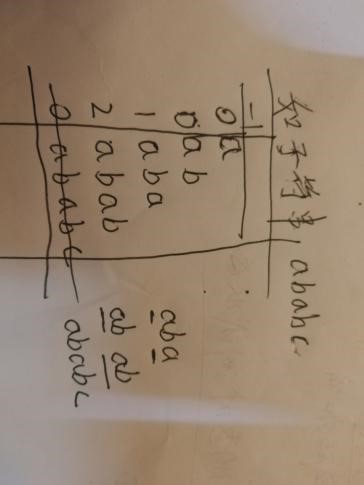 如子符串, ababc.
-1
0 a
0 ab
1 aba aba
2 abab ab ab
0 ababc ababc